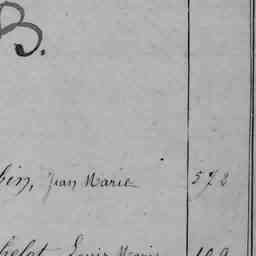 B.
bin, Jean Marie 572
helot, Louis Marie